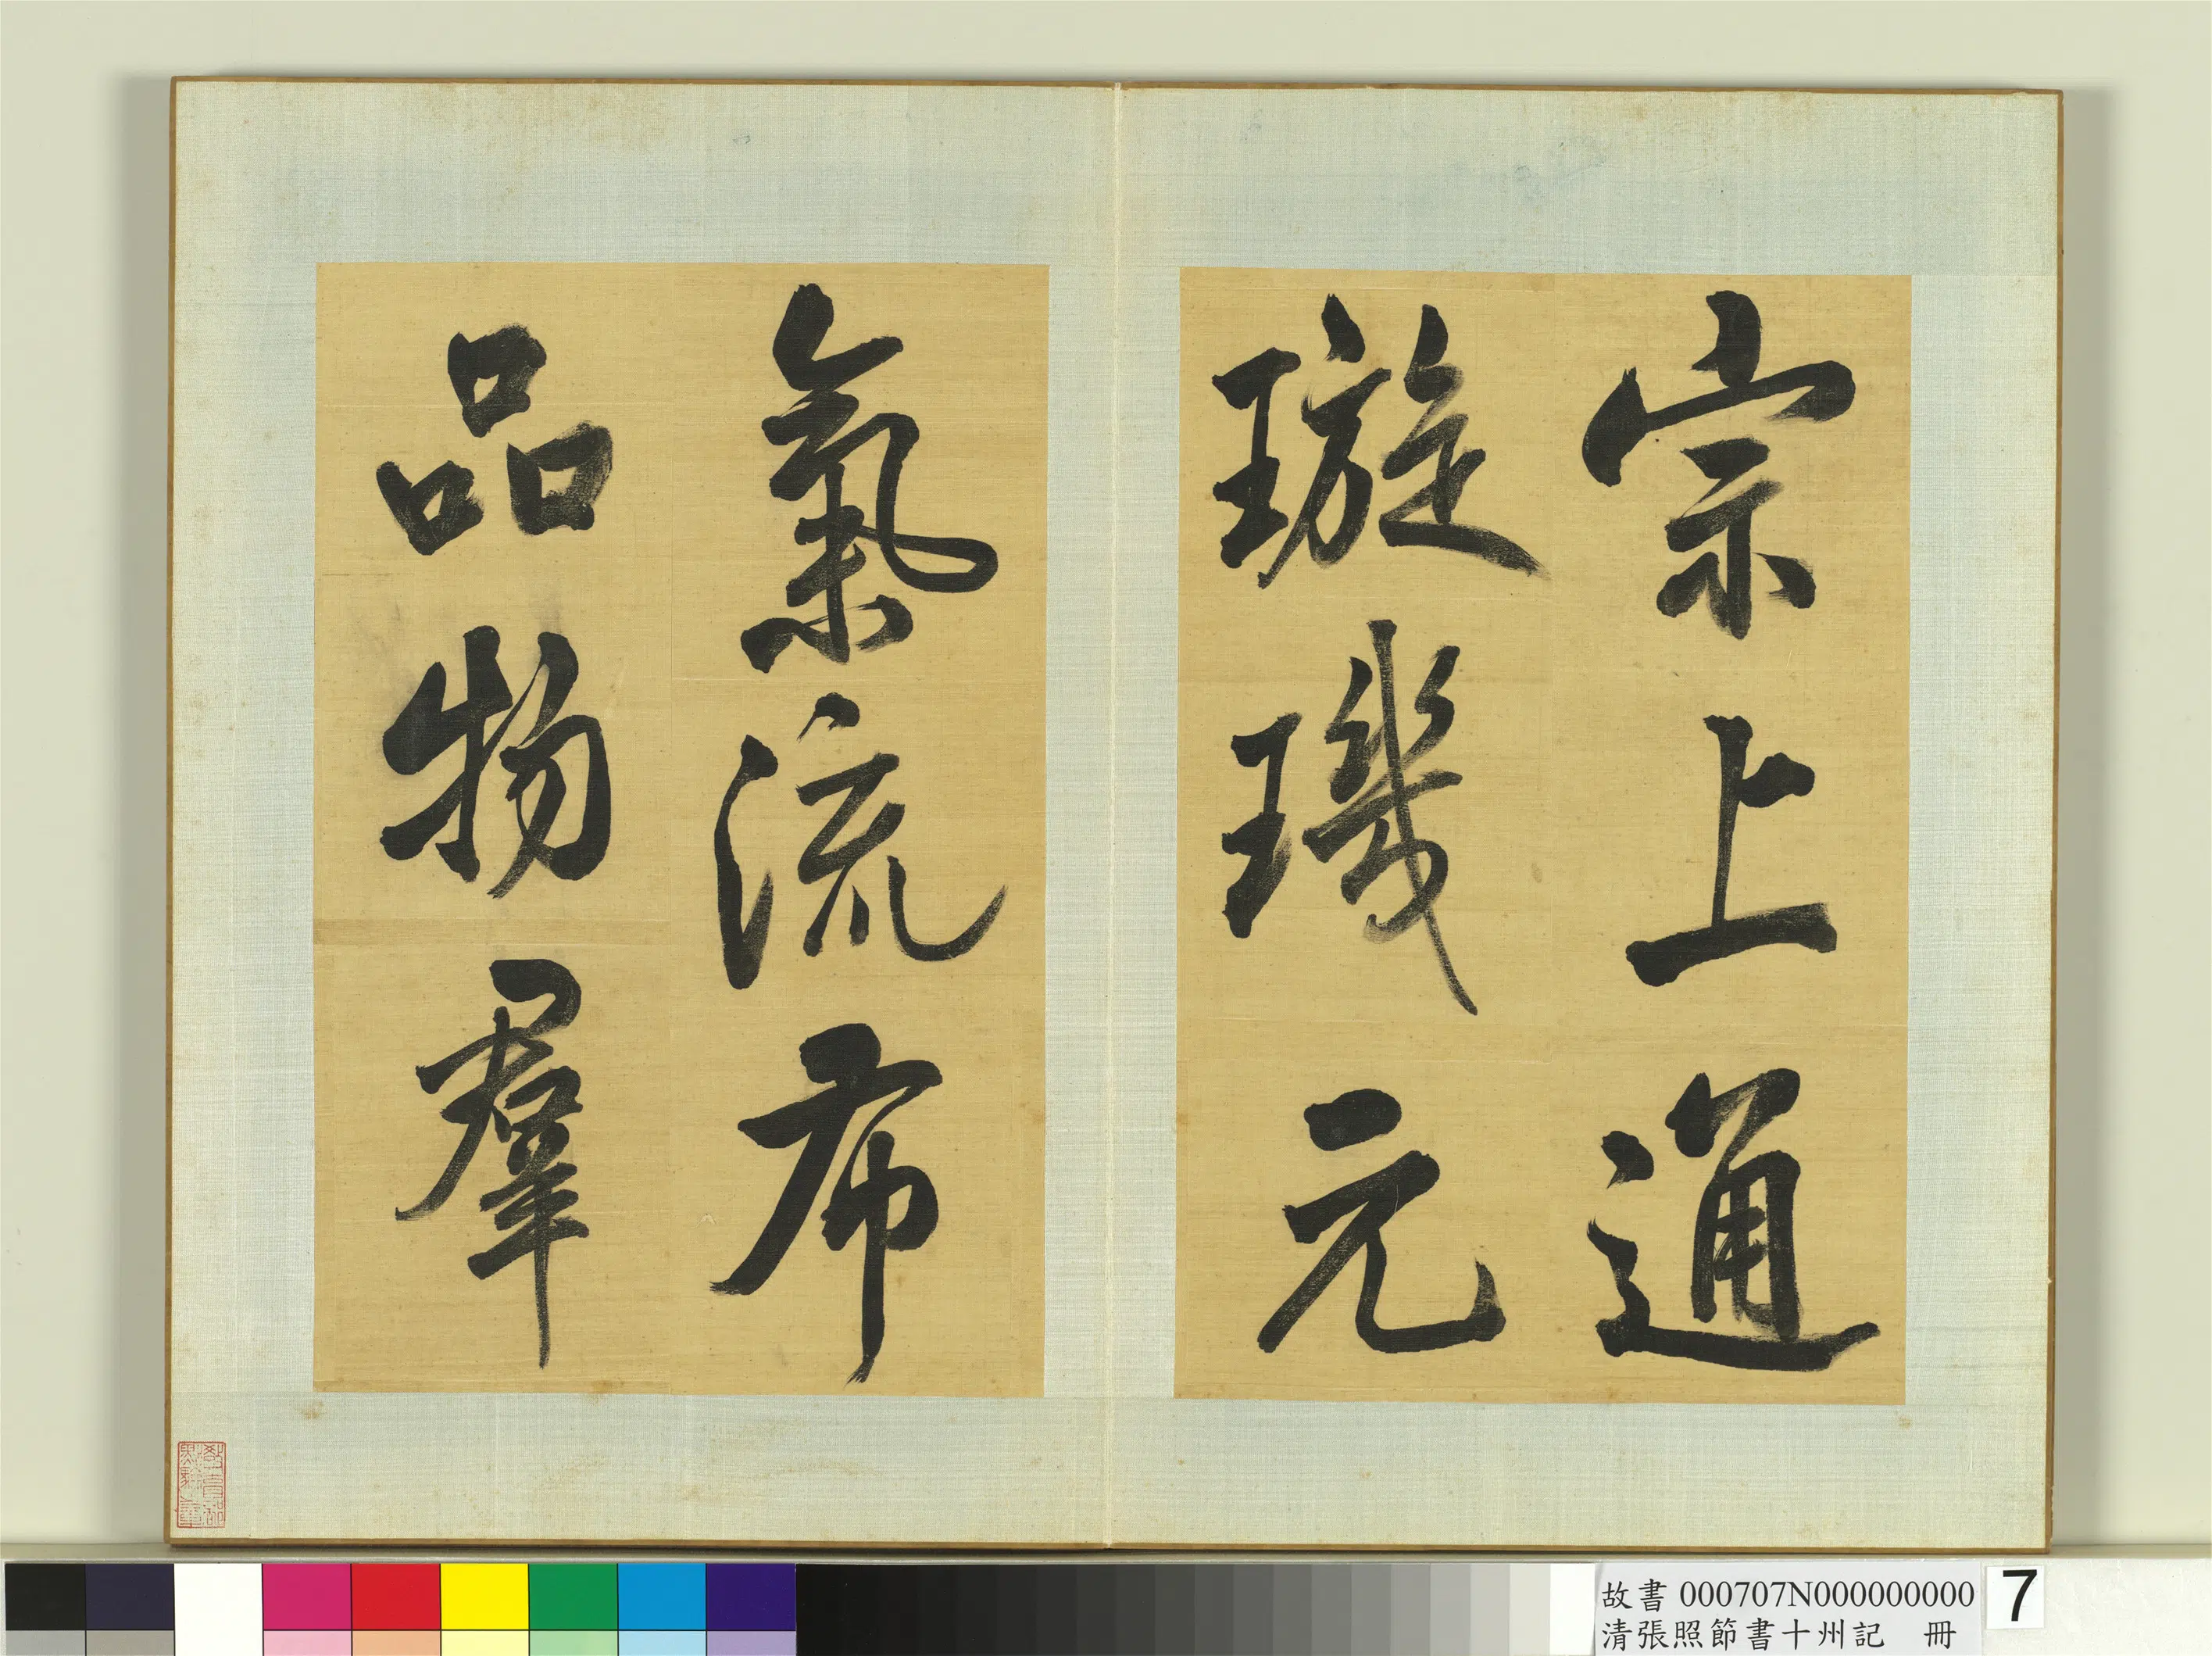 宗上通
璇璣元
氣流布
品物羣
故書 000707N000000000
清張照節書十州記 冊
7